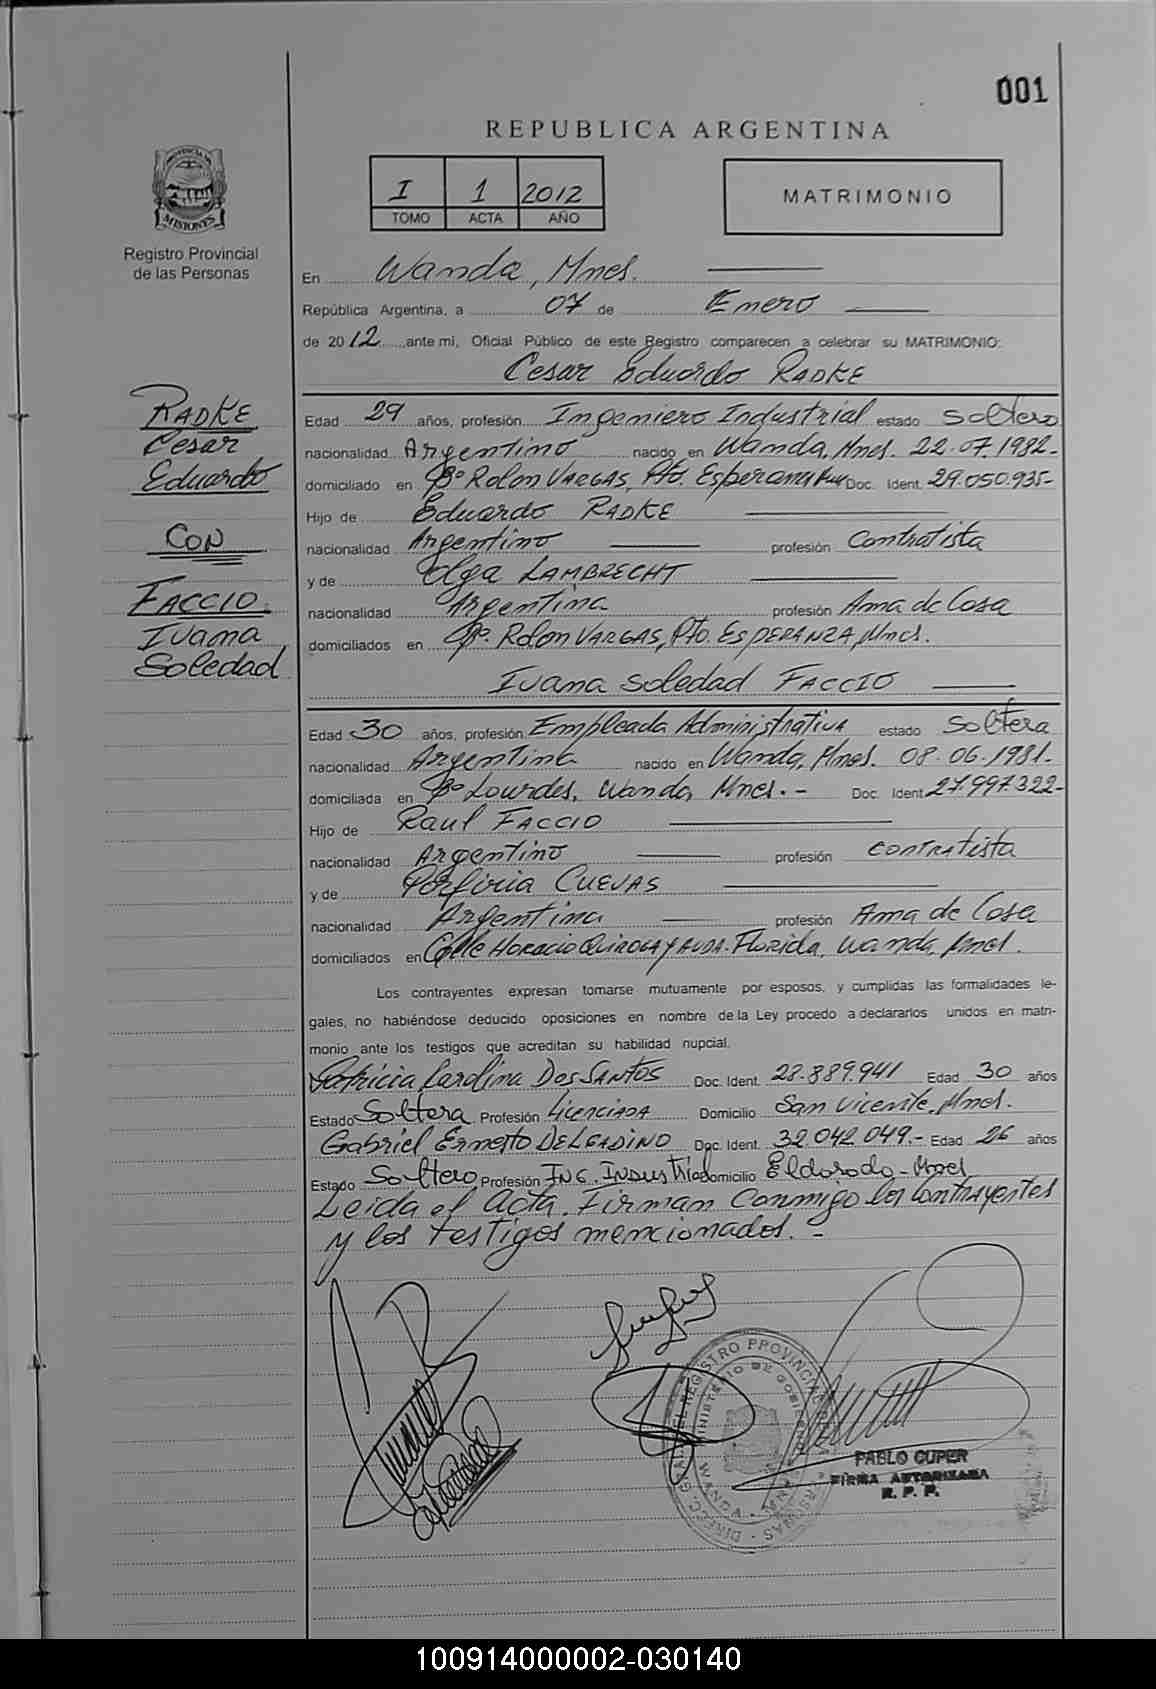 001
REPUBLICA ARGENTINA
I 1 2012
TOMO ACTA AÑO
MATRIMONIO
PROVINCIA DE
MISIONES
Registro Provincial
de las Personas
En Wanda, Mnes.
República Argentina, a 07 de Enero
de 2012 ante mi, Oficial Público de este Registro comparecen a celebrar su MATRIMONIO:
Cesar Eduardo RADKE
RADKE
Cesar
Eduardo
CON
FACCIO
Ivana
Soledad
Edad 29 años, profesión Ingeniero Industrial estado Soltero
nacionalidad Argentino nacido en Wanda, Mnes. 22.07.1982-
domiciliado en Bº Rolon VARGAS, Pto. Esperanza Doc. Ident. 29.050.935-
Hijo de Eduardo RADKE
nacionalidad Argentino profesión Contratista
y de Olga LAMBRECHT
nacionalidad Argentina profesión Ama de Casa
domiciliados en Bº. Rolon VARGAS, Pto. ESPERANZA, Mnes.
Ivana Soledad FACCIO
Edad 30 años, profesión Empleada Administrativa estado Soltera
nacionalidad Argentina nacido en Wanda, Mnes. 08-06-1981-
domiciliada en Bº Lourdes, Wanda, Mnes.- Doc. Ident 27.997.322-
Hijo de Raul FACCIO
nacionalidad Argentino profesión contratista
y de Porfiria CUEVAS
nacionalidad Argentina profesión Ama de Casa
domiciliados en Calle HORACIO QUIROGA Y AVDA. Florida, Wanda, Mnes.
Los contrayentes expresan tomarse mutuamente por esposos, y cumplidas las formalidades le-
gales, no habiéndose deducido oposiciones en nombre de la Ley procedo a declararlos unidos en matri-
monio ante los testigos que acreditan su habilidad nupcial.
Patricia Carolina Dos SANTOS Doc. Ident. 28.889.941 Edad 30 años
Estado Soltera Profesión Licenciada Domicilio San Vicente, Mnes.
Gabriel Ernesto DELGADINO Doc. Ident. 32.042.049.- Edad 26 años
Estado Soltero Profesión ING. INDUSTRIAL Domicilio Eldorado - Mnes
Leida el Acta. Firman conmigo los Contrayentes
y los testigos mencionados. -
PABLO CUPER
FIRMA AUTORIZADA
R. P. P.
100914000002-030140